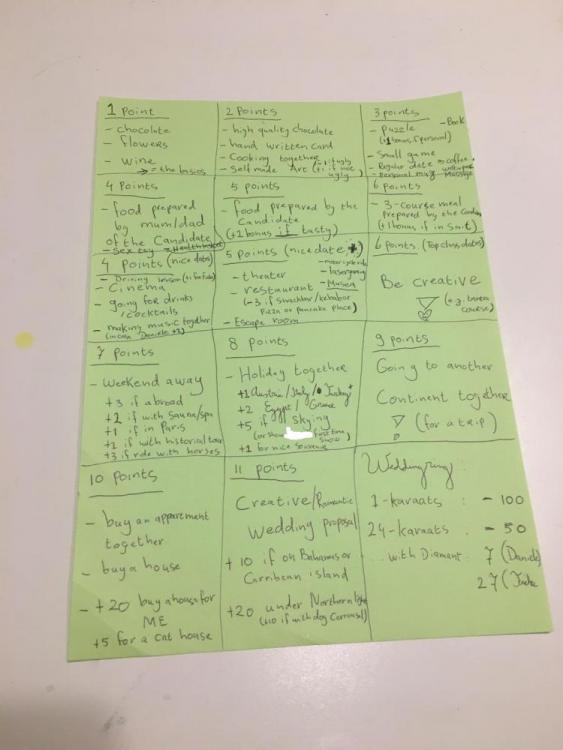 1 Point
- chocolate
- flowers
- wine
→ the basics
2 Points
- high quality chocolate
- hand written card
- Cooking together
- Self made Art (-1 if ugly
+1 if not ugly)
3 points
- Book
- Puzzle
(+1 bonus if personal)
- Small game
- Regular date → coffee
- Personal mug - Massage
4 Points
- food prepared
by mum/dad
of the Candidate
5 points
- food prepared by the
Candidate
(+2 bonus if tasty)
6 Points
- 3-course meal
prepared by the
(+1 bonus if in suit)
4 Points (nice date)
- Driving lesson
- Cinema
- going for drinks
/cocktails
- making music together
(in case Daniele +2)
5 Points (nice date)
- theater
- lasergaming
- restaurant - Musea
(-3 if
Pizza or pancake place)
- Escape room
6 points (Top class dates)
Be creative
7 Points
- Weekend away
+3 if abroad
+2 if with Sauna/spa
+1 if in Paris
+2 if with historical tour
+3 if ride with horses
8 Points
- Holiday together
+1 Austria/Italy/Turkey
+2 Egypt/Greece
+5 if skying
(or show first time
snow)
+1 for nice souvenir
9 points
Going to another
Continent together
(for a trip)
10 Points
- buy an appartment
together
- buy a house
- +20 buy a house for
ME
+5 for a cat house
11 points
Creative/Romantic
Wedding proposal
+10 if on Bahamas or
Carribean island
+20 under Northern lights
Weddingring:
1-karaats : - 100
24-karaats - 50
with Diamant: 7 (Daniele
27 (